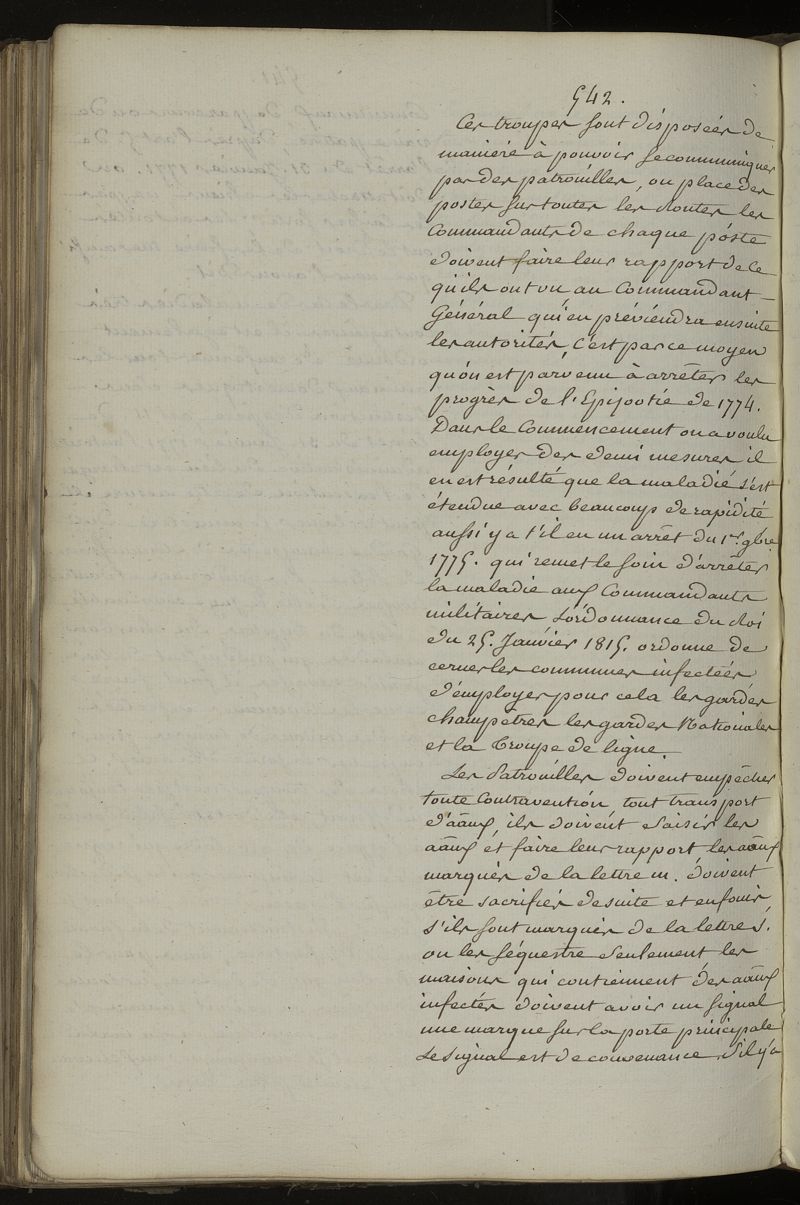 542.
Ces troupes sont disposées de
maniere à pouvoir se communiquer
par des patrouilles, on place des
postes sur toutes les Routes les
Commandants de chaque póste
doivent faire leur rapport de ce
qu'ils ont vu au Commandant
Général qui en préviendra ensuite
les autorités, c'est par ce moyen
qu'on est parvenu à arrêter les
progrès de l'Epizootie de 1774.
Dans le Commencement on a voulu
employer des demi mesures il
en est résulté que la maladie s'est
étendue avec beaucoup de rapidité
aussi y a t'il eu un arrêt du 1er 9bre
1775. qui remet le soin d'arrêter
la maladie aux Commandants
militaires L'ordonnance du Roi
du 25. Janvier 1815. ordonne de
cerner les communes infectées
d'employer pour cela les gardes
champêtres les gardes Nationales
et la Troupe de ligne.
Les Patrouilles doivent empêcher
toute Contravention, tout transport
d'āāux, ils doivent saisir les
āāux et faire leur rapport les āāux
marqués de la lettre m. doivent
être sacrifiés de suite et enfouis,
s'ils sont marqués de la lettre S.
on les séquestre seulement les
maisons qui contiennent des āāux
infectés doivent avoir un signal
une marque sur la porte principale
Le signal est de convenance, s'il y a